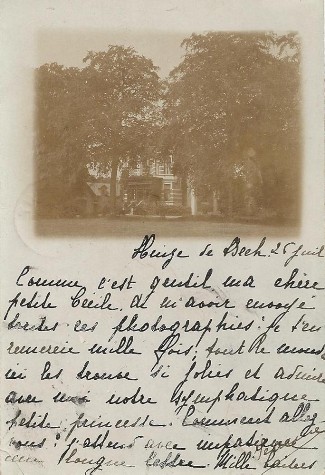 Huize de Beek. 25 Juil
Comme c'est gentil ma chère
petite Cécile, de m'avoir envoyé
toutes ces photographies! je t'en
remercie mille fois; tout le monde
ici les trouve si jolies et admire
avec moi notre symphatique
petite princesse. Comment allez
vous? j'attend avec impatience
une longue lettre Mille